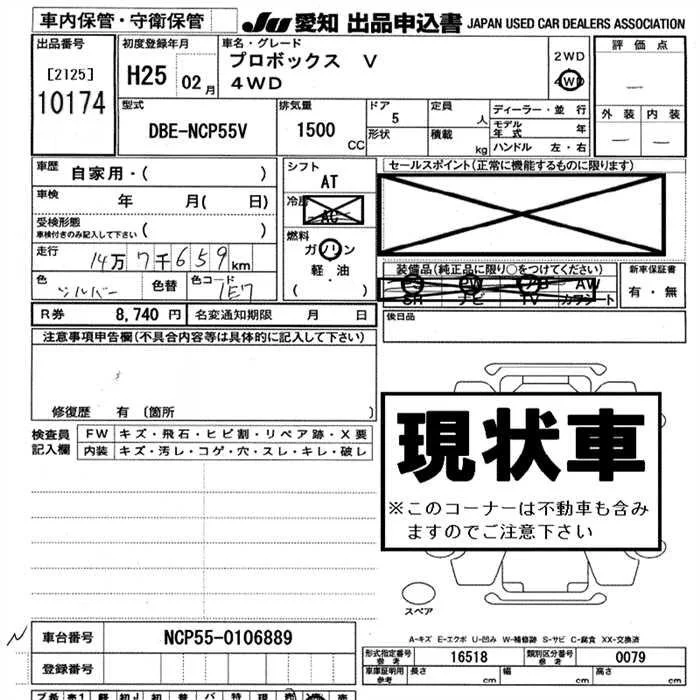 車内保管・守衛保管
JU 愛知 出品申込書 JAPAN USED CAR DEALERS ASSOCIATION
出品番号
[2125]
10174
初度登録年月
H25 02月
車名・グレード
プロボックス V
4WD
2WD
4WD
評価点
―
外装 内装
― ―
型式
DBE-NCP55V
排気量
1500
CC
ドア
5
形状
定員
人
積載
kg
ディーラー・並行
モデル年式 年
ハンドル 左・右
車歴 自家用・( )
車検 年 月( 日)
受検形態
車検付きのみ記入して下さい ( )
走行 14万7千659km
色 シルバー 色替 色コード 1E7
シフト
AT
冷房
AC
燃料
ガソリン
軽・油
( )
セールスポイント(正常に機能するものに限ります)
装備品(純正品に限り○をつけてください)
PS PW AB AW
SR ナビ TV カラシート
新車保証書
有・無
後日品
R券 8,740円 名変通知期限 月 日
注意事項申告欄(不具合内容等は具体的に記入して下さい)
修復歴 有〔箇所 〕
検査員記入欄
FW キズ・飛石・ヒビ割・リペア跡・X要
内装 キズ・汚レ・コゲ・穴・スレ・キレ・破レ
現状車
※このコーナーは不動車も含み
ますのでご注意下さい
スペア
A-キズ E-エクボ U-凹み W-補修跡 S-サビ C-腐食 XX-交換済
車台番号 NCP55-0106889
登録番号
形式指定番号
参考
16518
類別区分番号
参考
0079
車庫証明用
参考
長さ cm 幅 cm 高さ cm